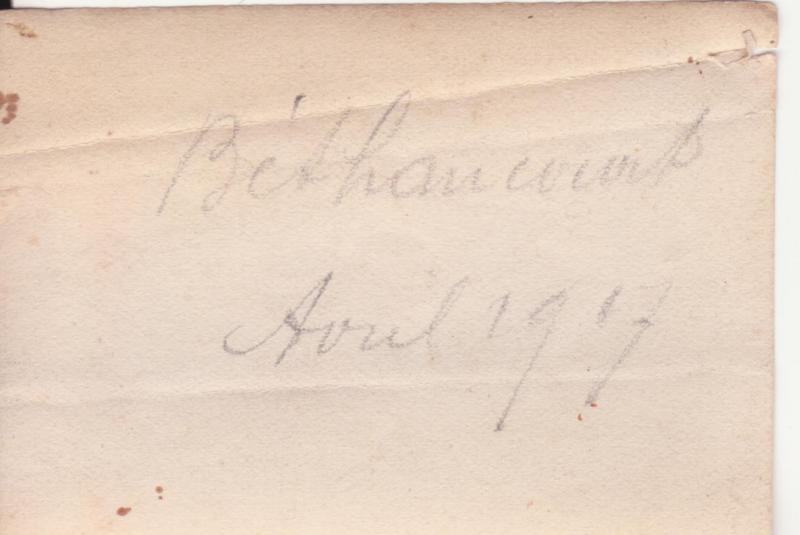 Béthancourt
Avril 1917